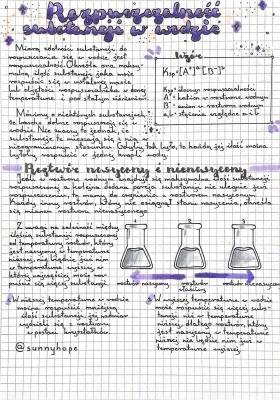 Rozpuszczalność
substancji w wodzie
Miarą zdolności substancji do
rozpuszczania się w wodzie jest
rozpuszczalność. Określa ona maksy-
malną ilość substancji jaka może
rozpuścić się w ustalonej masie
lub objętości rozpuszczalnika w danej
temperaturze i pod stałym ciśnieniem.
Wzór
Ksp=[A⁺]ᵃ[B⁻]ᵇ
Ksp- iloczyn rozpuszczalności
A⁺ - kation w roztworze wodnym
B⁻ - anion w roztworze wodnym
a,b - stężenia względne a i b
Mówimy o niektórych substancjach,
że bardzo dobrze rozpuszczają się w
wodzie. Nie znaczy to jednak, że
substancje te mieszają się z nią w
nieograniczonym stosunku. Gdyby tak było, to każda jej ilość można
byłoby rozpuścić w jednej kropli wody.
Roztwór nasycony i nienasycony
Jeśli w roztworze wodnym znajduje się maksymalna ilość substancji
rozpuszczonej, a kolejna dodana porcja substancji nie ulegnie już
rozpuszczeniu, to mamy do czynienia z roztworem nasyconym.
Każdy inny roztwór, który nie osiągnął stanu nasycenia, określa
się mianem roztworu nienasyconego.
Z uwagi na zależność między
ilością substancji rozpuszczonej
od temperatury, roztwór, który
jest nasycony w temperaturze
niższej, nie będzie już nim
w temperaturze wyższej, w
której zazwyczaj może roz-
puścić się więcej substancji
1 2 3
roztwór nasycony
roztwór
właściwy
roztwór nienasycony
W niższej temperaturze w wodzie
można rozpuścić mniej
substancji, jej nadmiar
wydzieli się z roztworu
w postaci kryształów
3. W wyższej temperaturze w wodzie
może rozpuścić się więcej subs-
tancji niż w temperaturze
niższej, dlatego roztwór, który
jest nasycony w temperaturze
niższej nie będzie nim już w
temperaturze wyższej
@sunnyhope